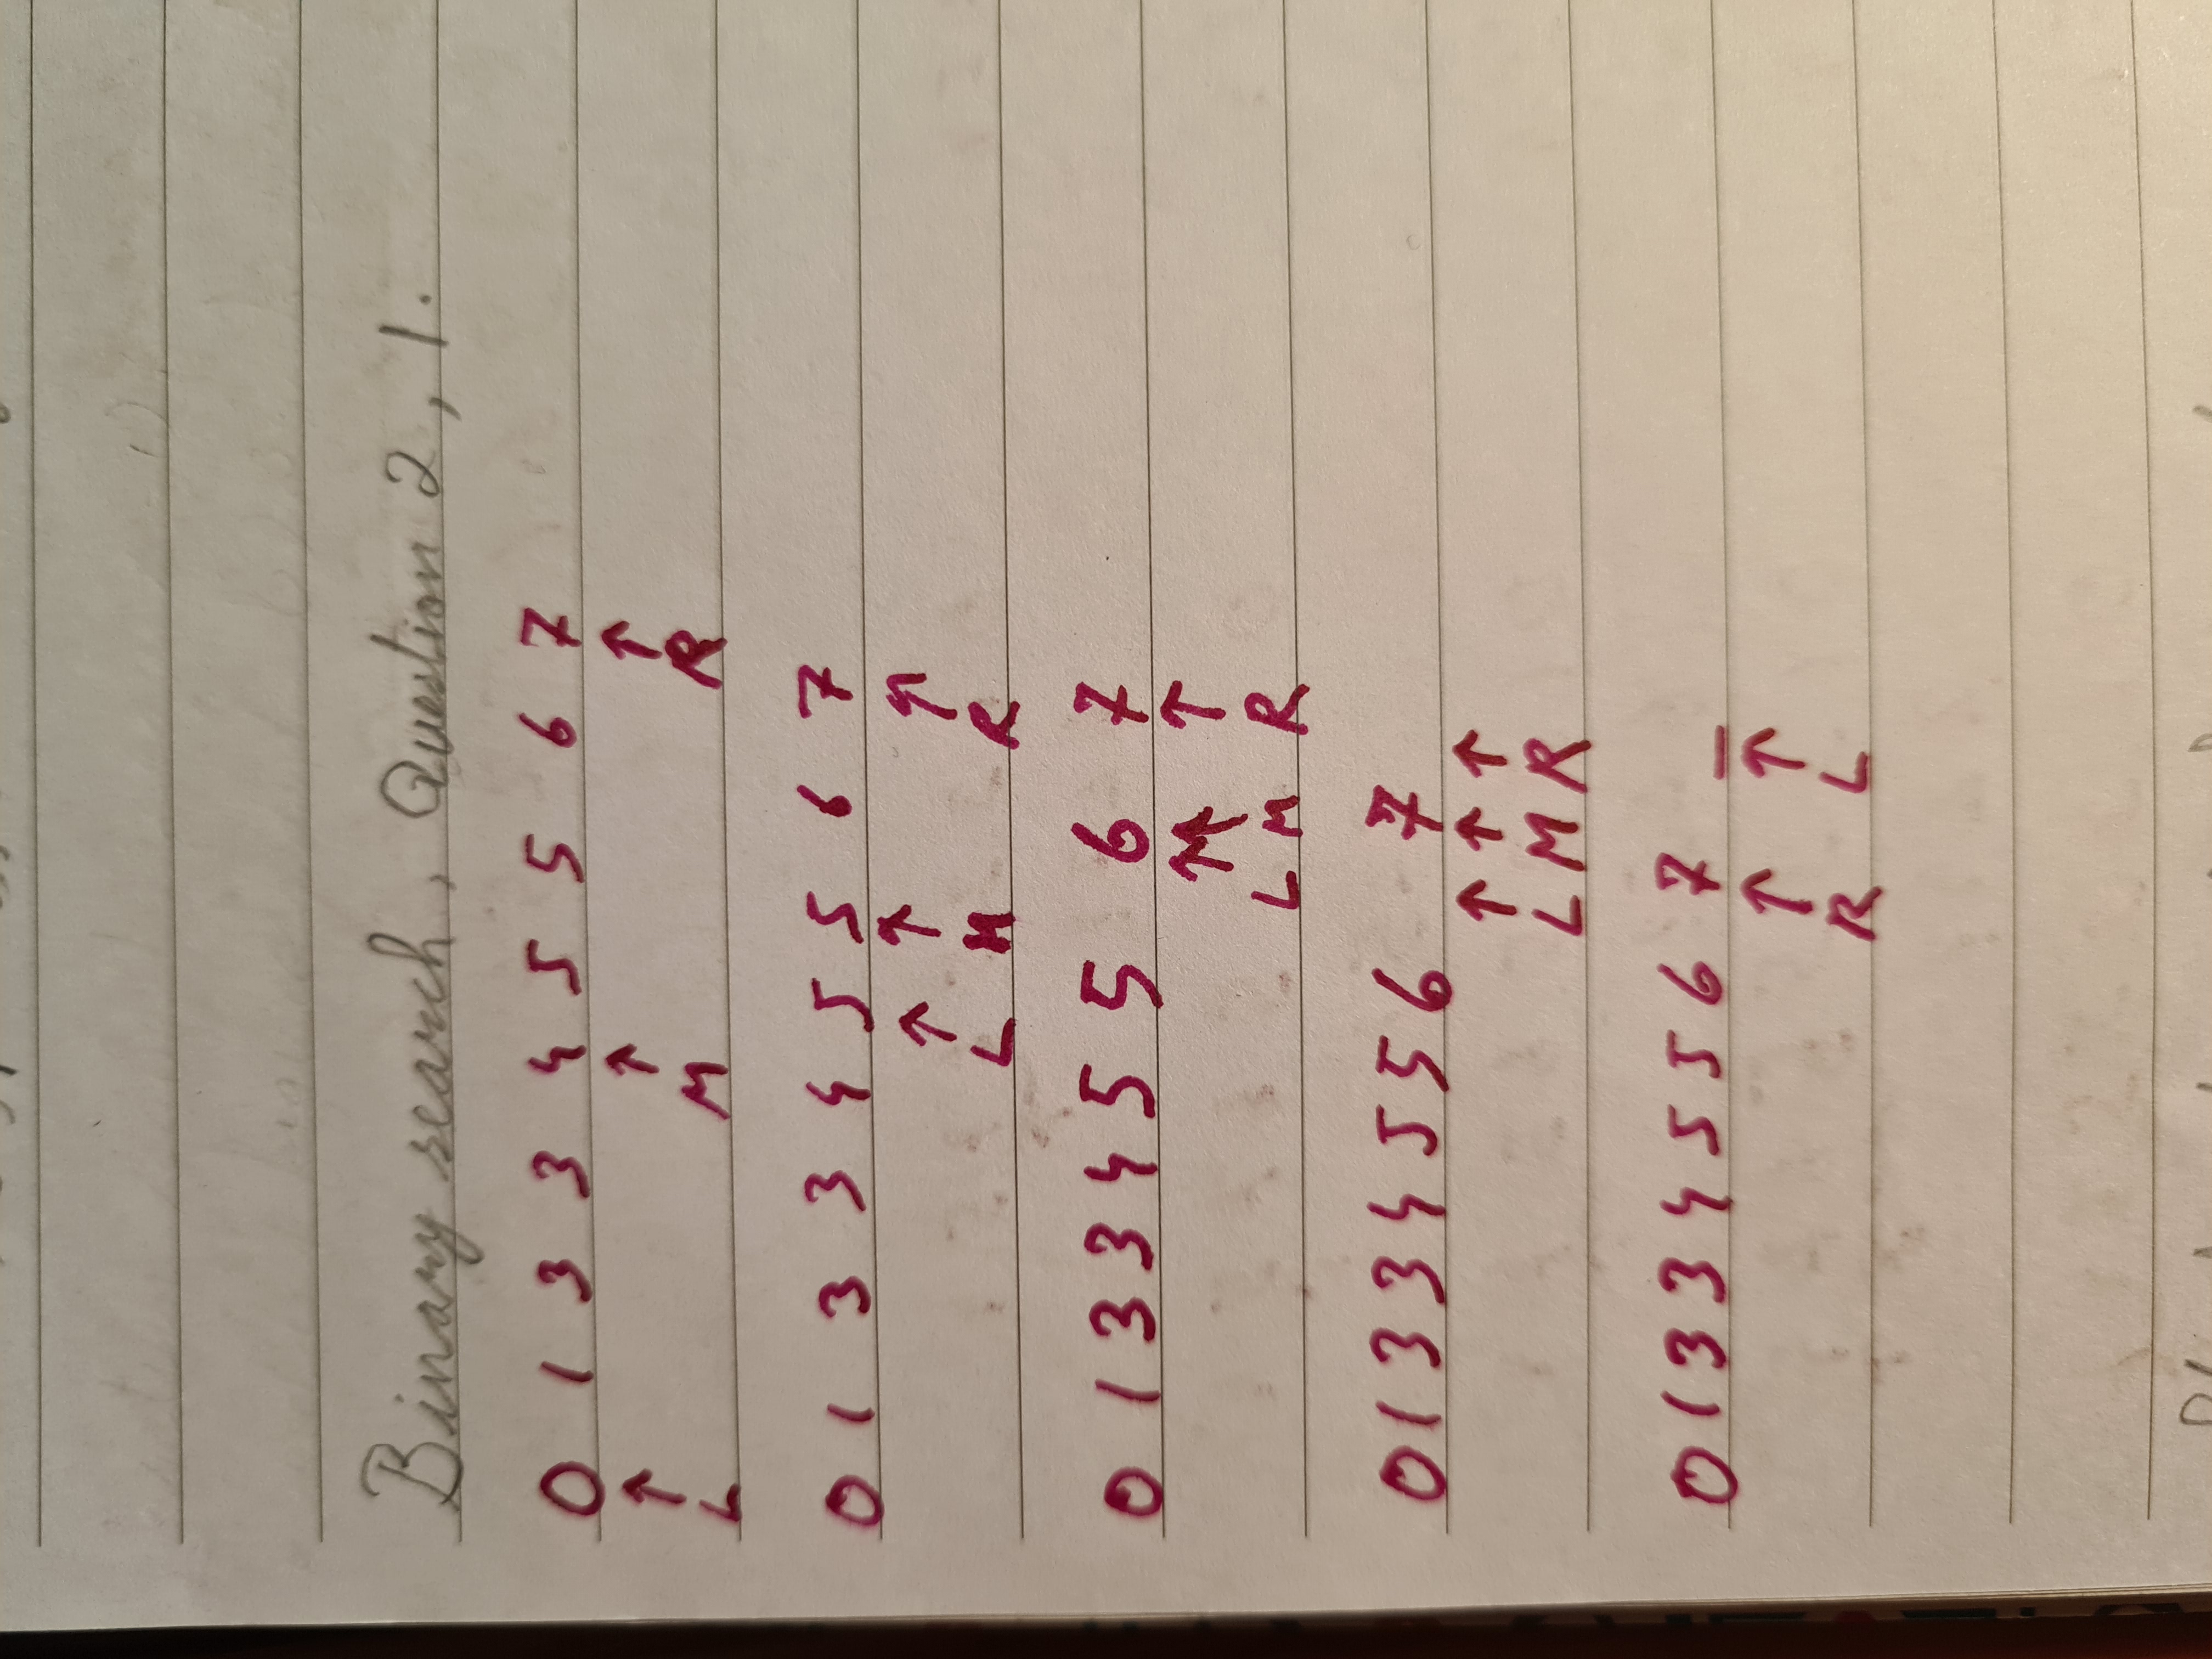 Binary search, Question 2, 1.
0 1 3 3 4 5 5 6 7
↑ ↑ ↑
L M R
0 1 3 3 4 5 5 6 7
↑ ↑ ↑
L M R
0 1 3 3 4 5 5 6 7
↑ ↑ ↑
L M R
0 1 3 3 4 5 5 6 7
↑ ↑ ↑
L M R
0 1 3 3 4 5 5 6 7 _
↑ ↑
R L